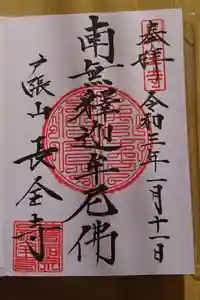 奉拝
令和三年一月十一日
南無釋迦牟尼佛
廣張山
長全寺